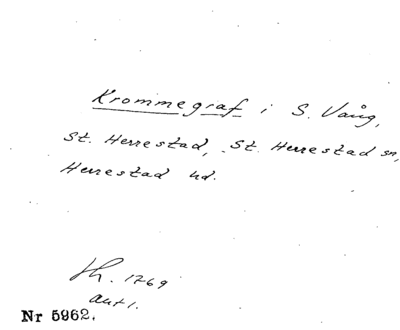 Krommegraf i S. Vång,
St. Herrestad, St. Herrestad sn,
Herrestad hd.
Th. 1769
ant 1.
Nr 5962.